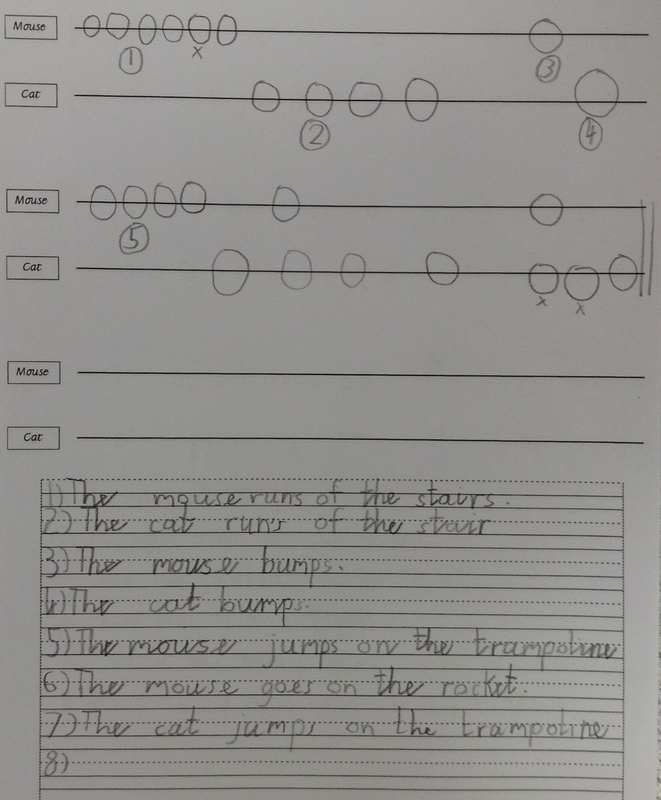 Mouse
①
x
③
Cat
②
④
Mouse
⑤
Cat
x
x
Mouse
Cat
1) The mouse runs of the stairs.
2) The cat runs of the stair
3) The mouse bumps.
4) The cat bumps.
5) The mouse jumps on the trampoline
6) The mouse goes on the rocket.
7) The cat jumps on the trampoline
8)